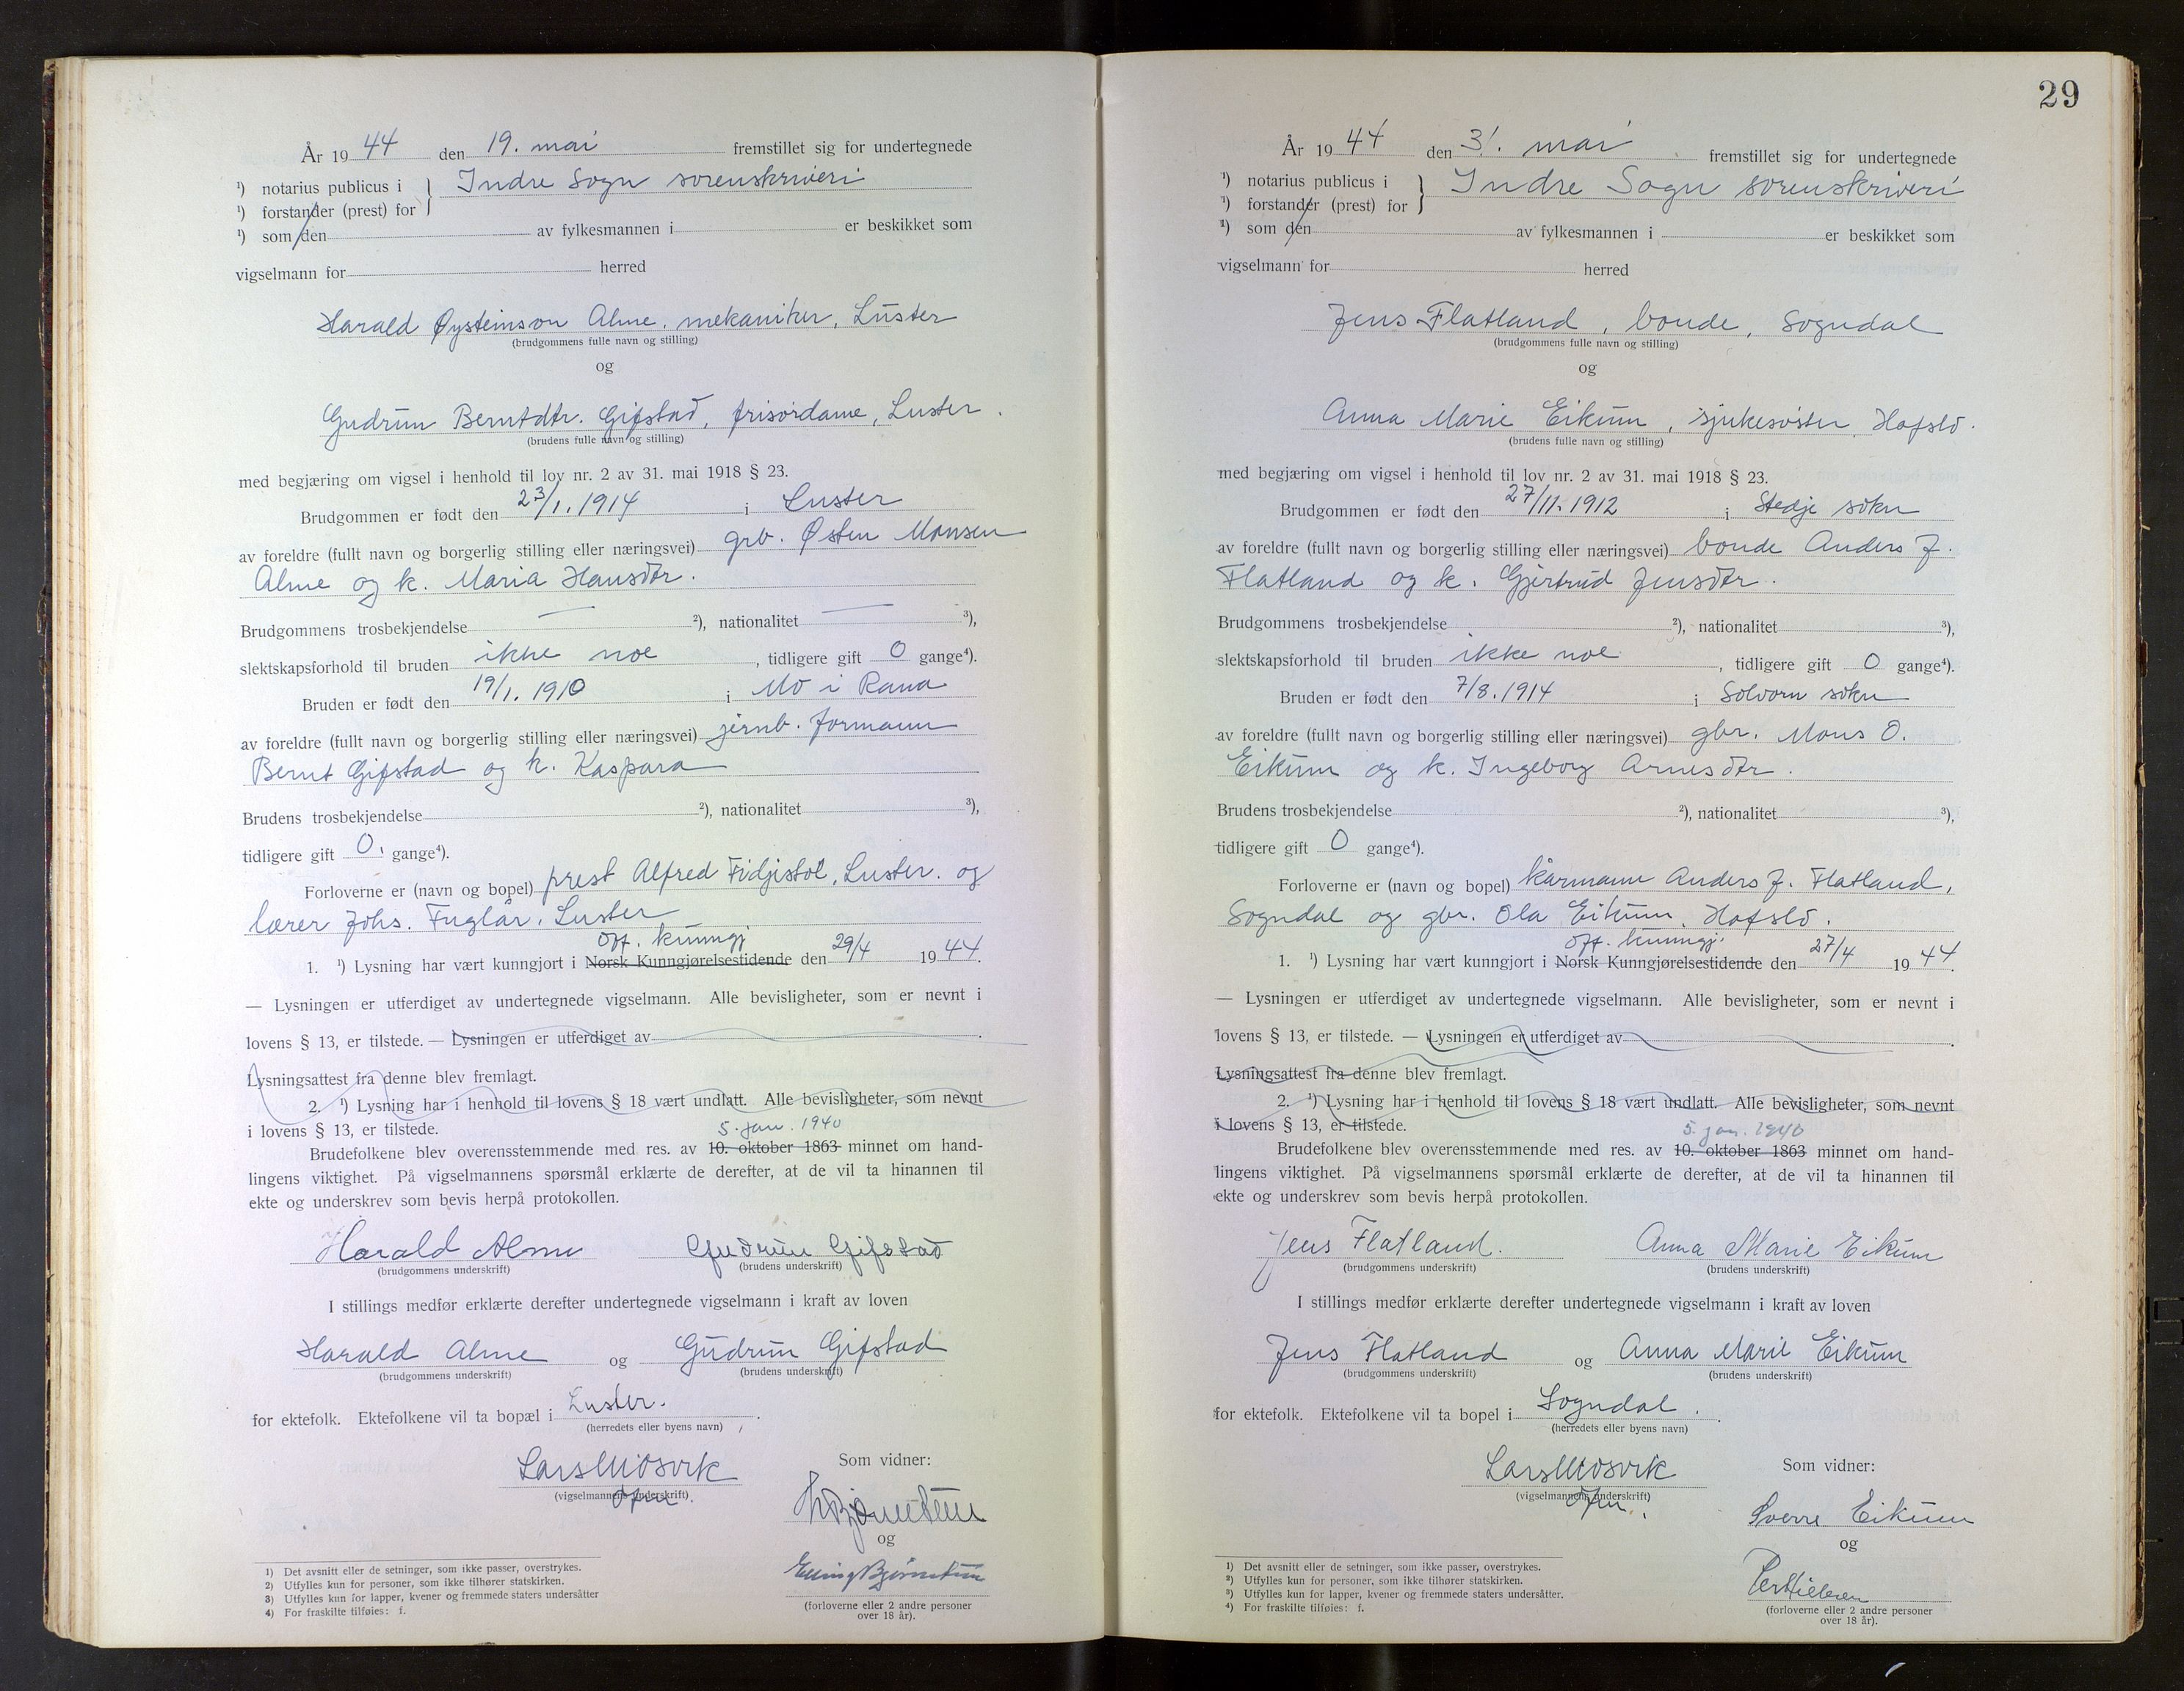 År 19 44 den 19. mai fremstillet sig for undertegnede
¹) notarius publicus i } Indre Sogn sorenskriveri
¹) forstander (prest) for
¹) som den av fylkesmannen i er beskikket som
vigselmann for herred
Harald Øysteinson Alme, mekaniker, Luster
(brudgommens fulle navn og stilling)
og
Gudrun Berntdtr. Gifstad, frisørdame, Luster.
(brudens fulle navn og stilling)
med begjæring om vigsel i henhold til lov nr. 2 av 31. mai 1918 § 23.
Brudgommen er født den 23/1. 1914 i Luster
av foreldre (fullt navn og borgerlig stilling eller næringsvei) grb. Østen Monsen
Alme og k. Maria Hansdtr.
Brudgommens trosbekjendelse — ²), nationalitet — ³),
slektskapsforhold til bruden ikke noe, tidligere gift 0 gange⁴).
Bruden er født den 19/1. 1910 i Mo i Rana
av foreldre (fullt navn og borgerlig stilling eller næringsvei) jernb. formann
Bernt Gifstad og k. Kaspara
Brudens trosbekjendelse ²), nationalitet ³),
tidligere gift 0, gange⁴).
Forloverne er (navn og bopel) prest Alfred Fidjistøl, Luster. og
lærer Johs. Fuglår, Luster
off. kunngj
1. ¹) Lysning har vært kunngjort i Norsk Kunngjørelsestidende den 29/4 19 44.
— Lysningen er utferdiget av undertegnede vigselmann. Alle bevisligheter, som er nevnt i
lovens § 13, er tilstede. — Lysningen er utferdiget av .
Lysningsattest fra denne blev fremlagt.
2. ¹) Lysning har i henhold til lovens § 18 vært undlatt. Alle bevisligheter, som nevnt
i lovens § 13, er tilstede.
5. jan. 1940
Brudefolkene blev overensstemmende med res. av 10. oktober 1863 minnet om hand-
lingens viktighet. På vigselmannens spørsmål erklærte de derefter, at de vil ta hinannen til
ekte og underskrev som bevis herpå protokollen.
Harald Alme Gudrun Gifstad
(brudgommens underskrift) (brudens underskrift)
I stillings medfør erklærte derefter undertegnede vigselmann i kraft av loven
Harald Alme og Gudrun Gifstad
(brudgommens underskrift) (brudens underskrift)
for ektefolk. Ektefolkene vil ta bopæl i Luster.
(herredets eller byens navn)
Lars Mosvik Som vidner:
(vigselmannens underskrift)
og
Elling Bjørnetun
(forloverne eller 2 andre personer
over 18 år).
1) Det avsnitt eller de setninger, som ikke passer, overstrykes.
2) Utfylles kun for personer, som ikke tilhører statskirken.
3) Utfylles kun for lapper, kvener og fremmede staters undersåtter
4) For fraskilte tilføies: f.
29
År 19 44 den 31. mai fremstillet sig for undertegnede
¹) notarius publicus i } Indre Sogn sorenskriveri
¹) forstander (prest) for
¹) som den av fylkesmannen i er beskikket som
vigselmann for herred
Jens Flatland, bonde, Sogndal
(brudgommens fulle navn og stilling)
og
Anna Marie Eikum, sjukesøster, Hafslo.
(brudens fulle navn og stilling)
med begjæring om vigsel i henhold til lov nr. 2 av 31. mai 1918 § 23.
Brudgommen er født den 27/11. 1912 i Stedje sokn
av foreldre (fullt navn og borgerlig stilling eller næringsvei) bonde Anders J.
Flatland og k. Gjertrud Jensdtr.
Brudgommens trosbekjendelse ²), nationalitet ³),
slektskapsforhold til bruden ikke noe, tidligere gift 0 gange⁴).
Bruden er født den 7/8. 1914 i Solvorn sokn
av foreldre (fullt navn og borgerlig stilling eller næringsvei) gbr. Mons O.
Eikum og k. Ingeborg Arnesdtr.
Brudens trosbekjendelse ²), nationalitet ³),
tidligere gift 0 gange⁴).
Forloverne er (navn og bopel) kårmann Anders J. Flatland,
Sogndal og gbr. Ola Eikum, Hafslo.
off. kunngj.
1. ¹) Lysning har vært kunngjort i Norsk Kunngjørelsestidende den 27/4 19 44.
— Lysningen er utferdiget av undertegnede vigselmann. Alle bevisligheter, som er nevnt i
lovens § 13, er tilstede. — Lysningen er utferdiget av .
Lysningsattest fra denne blev fremlagt.
2. ¹) Lysning har i henhold til lovens § 18 vært undlatt. Alle bevisligheter, som nevnt
i lovens § 13, er tilstede.
5. jan. 1940
Brudefolkene blev overensstemmende med res. av 10. oktober 1863 minnet om hand-
lingens viktighet. På vigselmannens spørsmål erklærte de derefter, at de vil ta hinannen til
ekte og underskrev som bevis herpå protokollen.
Jens Flatland. Anna Marie Eikum
(brudgommens underskrift) (brudens underskrift)
I stillings medfør erklærte derefter undertegnede vigselmann i kraft av loven
Jens Flatland og Anna Marie Eikum
(brudgommens underskrift) (brudens underskrift)
for ektefolk. Ektefolkene vil ta bopel i Sogndal.
(herredets eller byens navn)
Lars Mosvik Som vidner:
(vigselmannens underskrift)
Sverre Eikum
og
(forloverne eller 2 andre personer
over 18 år).
1) Det avsnitt eller de setninger, som ikke passer, overstrykes.
2) Utfylles kun for personer, som ikke tilhører statskirken.
3) Utfylles kun for lapper, kvener og fremmede staters undersåtter.
4) For fraskilte tilføies: f.